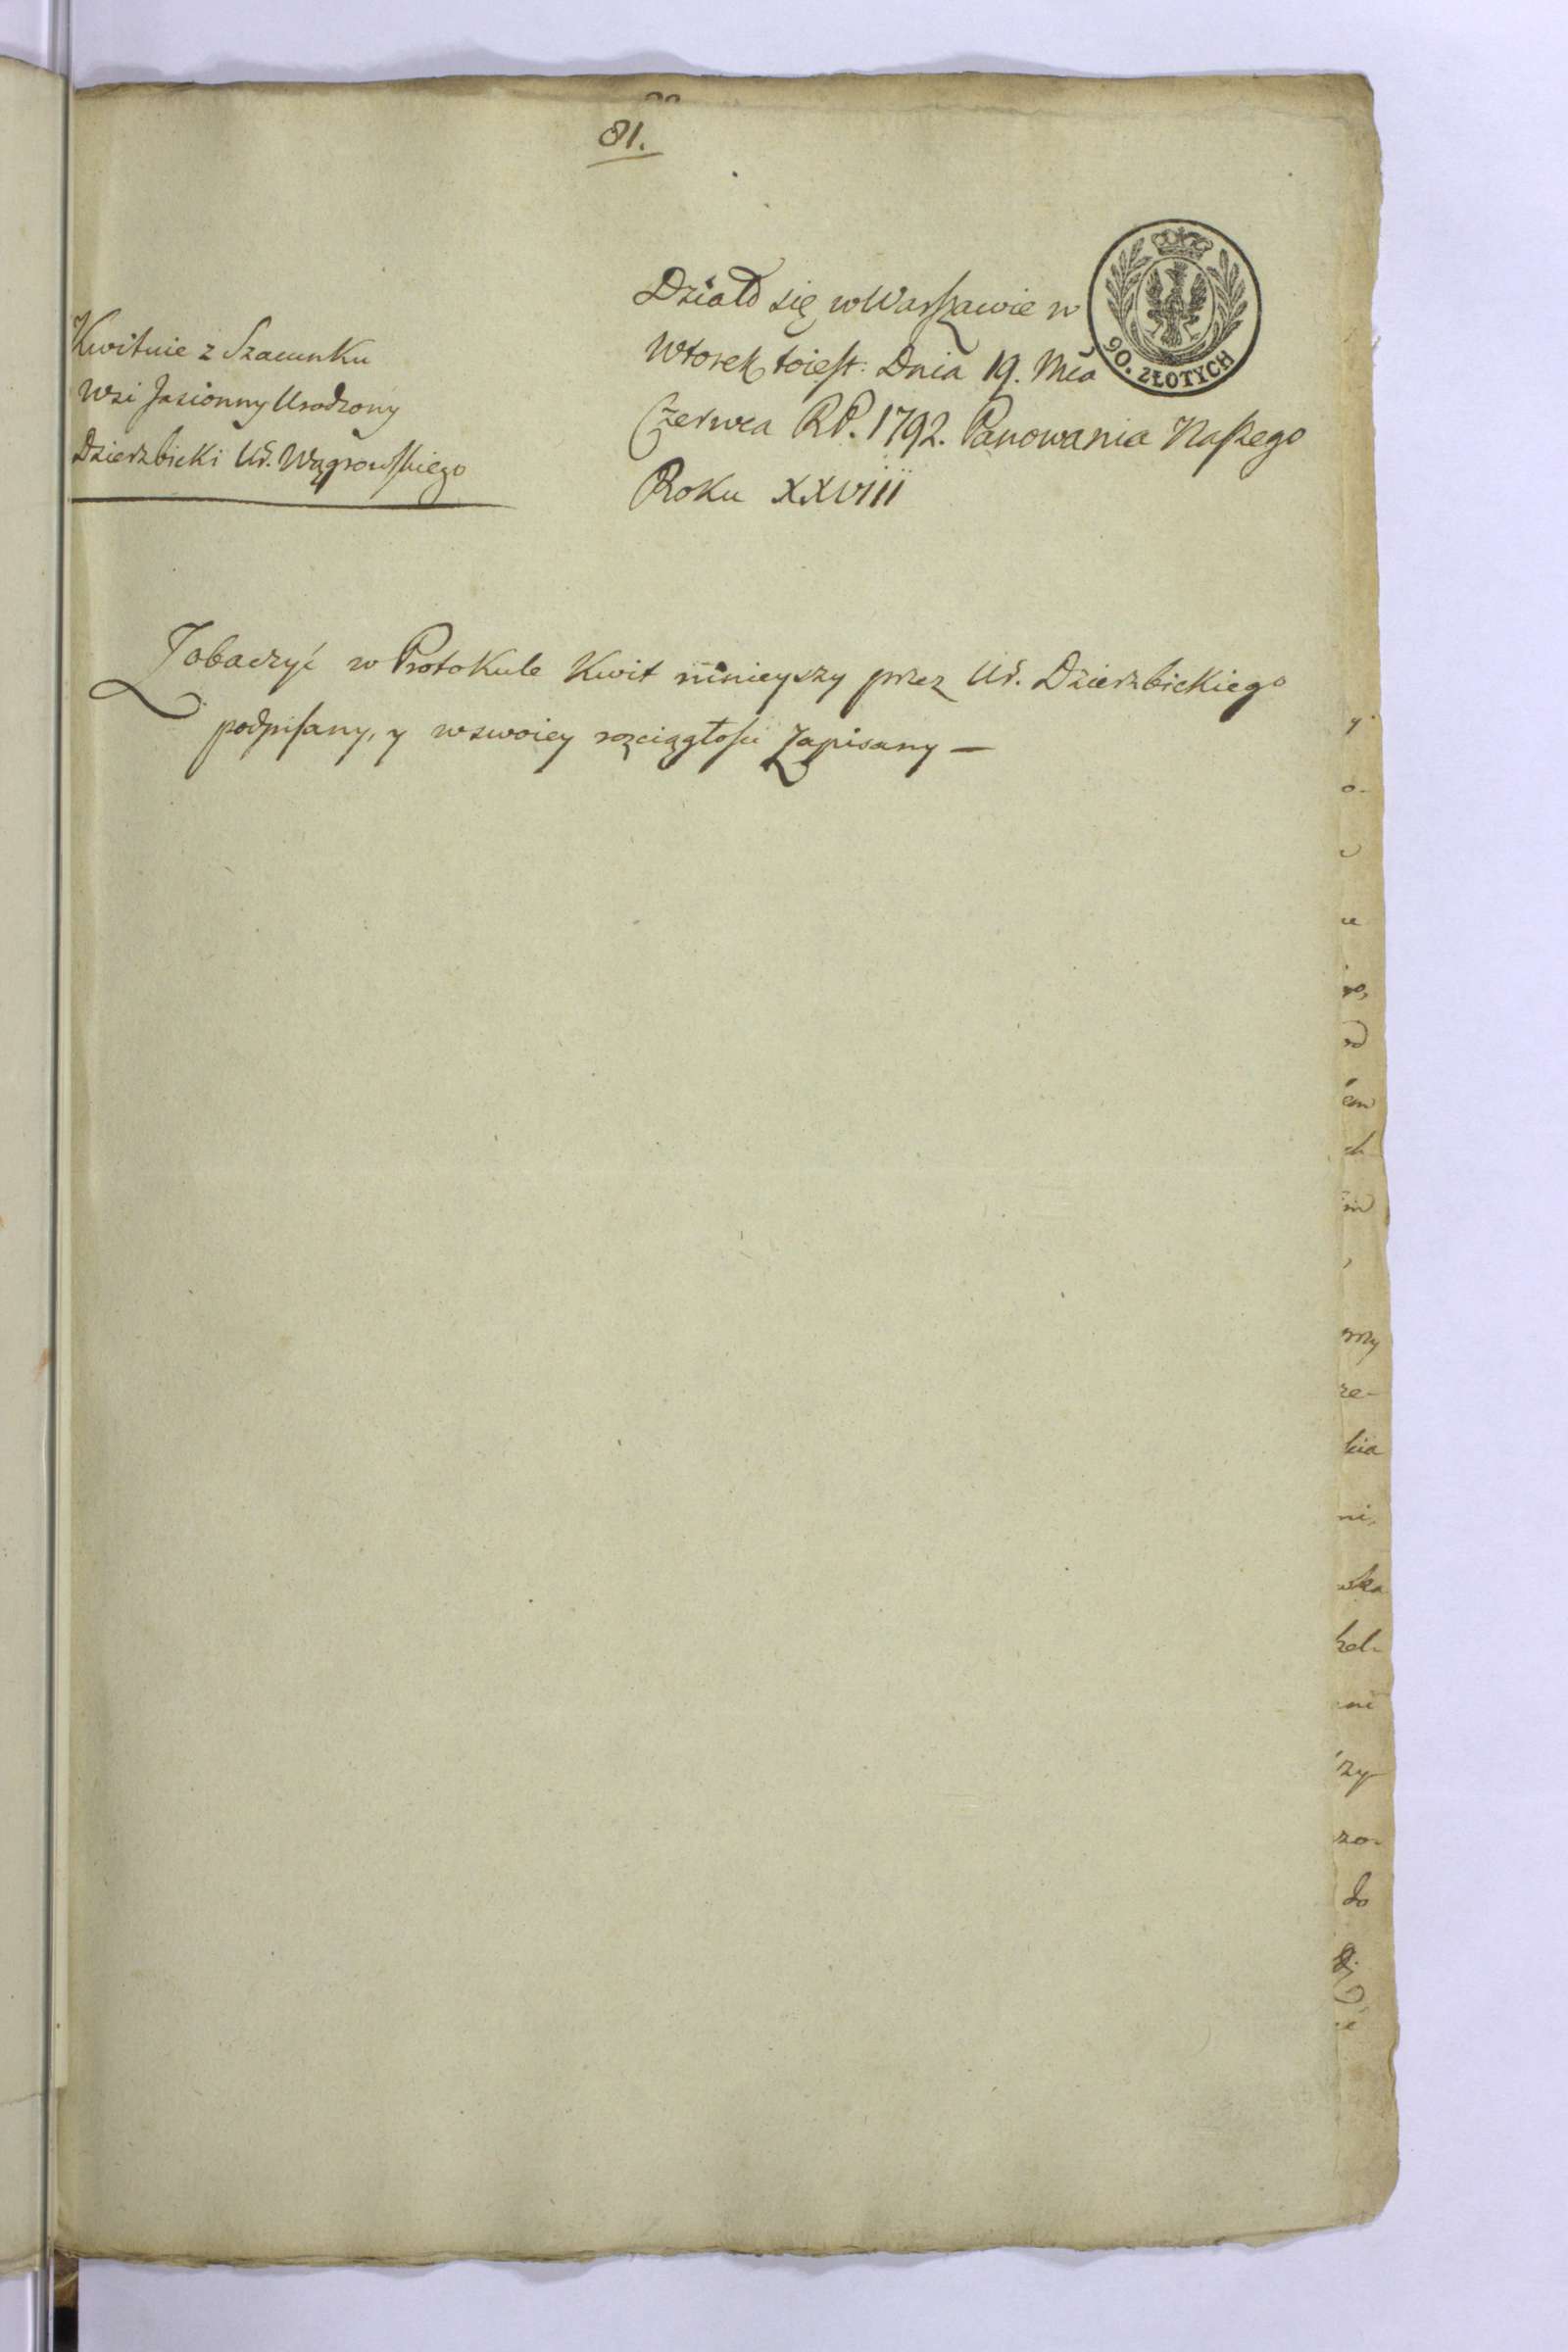 81.
Działo się w Warszawie w
Wtorek toiest: Dnia 19. Mca
Czerwca RP. 1792. Panowania Naszego
Roku XXVIII
90. ZŁOTYCH
Kwituie z Szacunku
Wsi Jasionny Urodzony
Dzierzbicki Ur. Wągrowskiego
Zobaczyć w Protokule Kwit ninieyszy przez Ur. Dzierzbickiego
podpisany, y wswoiey rozciągłości Zapisany —